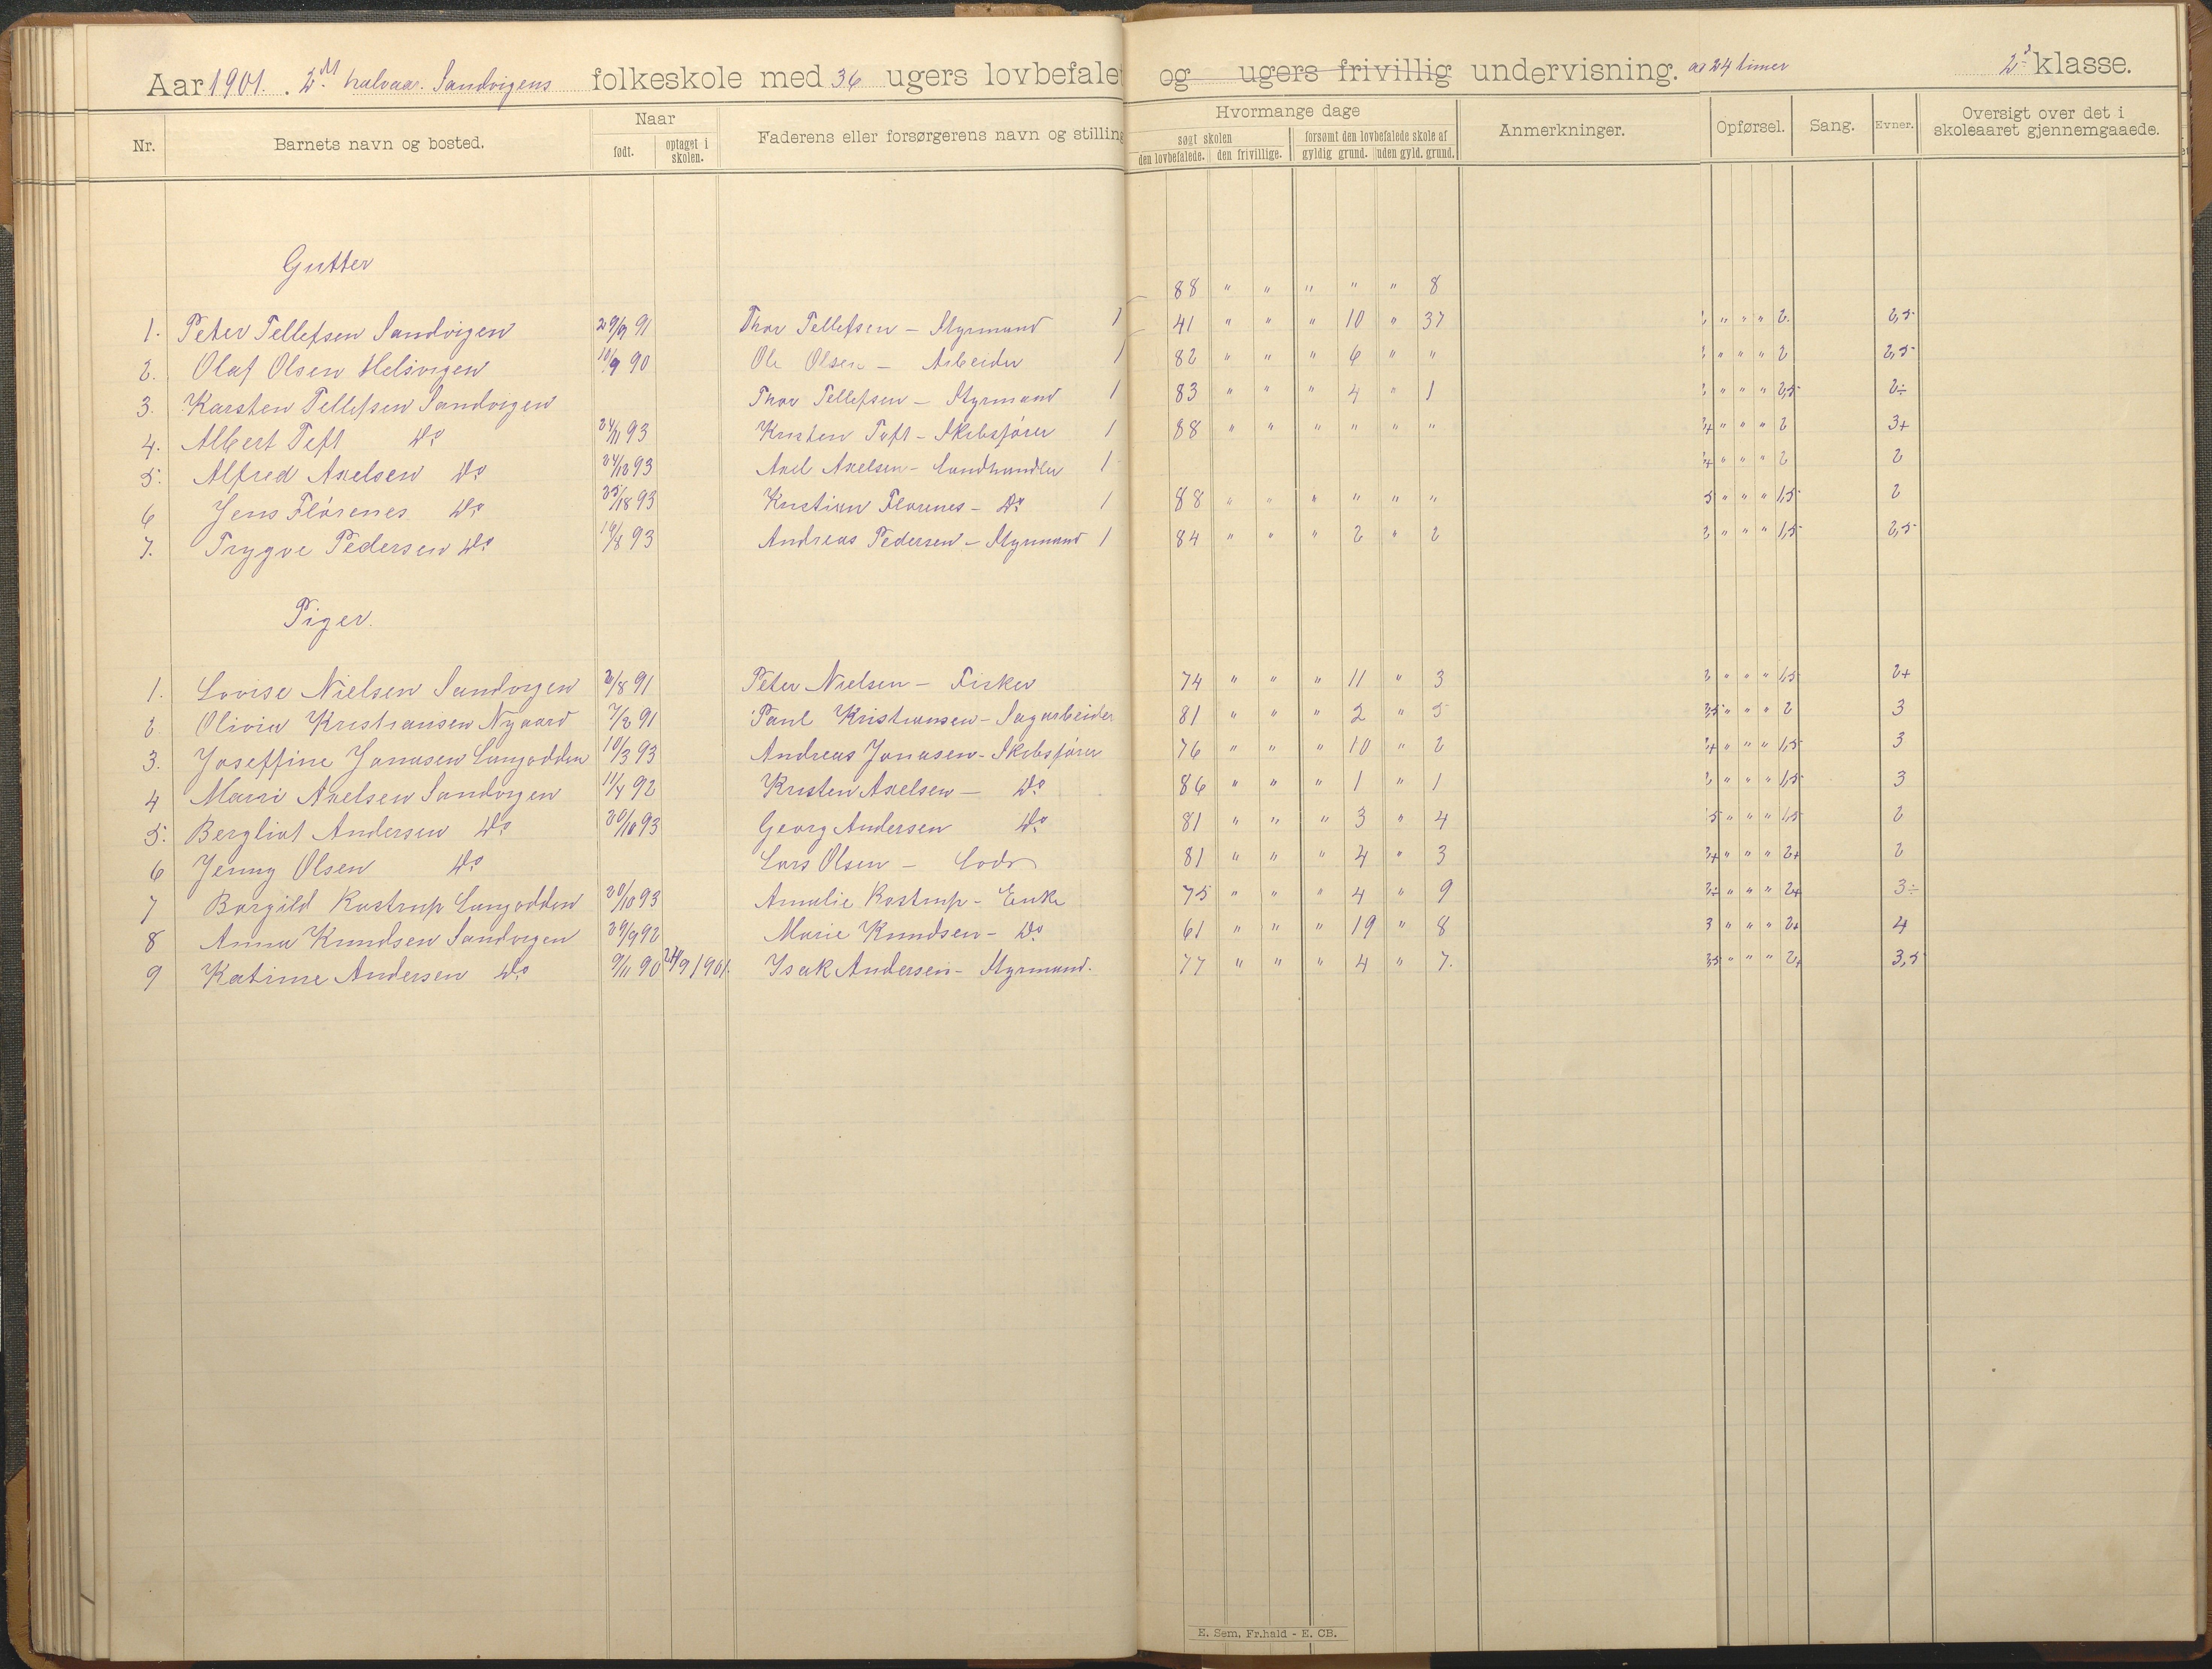 Aar 1901. 2det halvaar. Sandvigens folkeskole med 36 ugers lovbefalet og ugers frivillig undervisning. a 24 timer 2d klasse.
Nr. Barnets navn og bosted. Naar født. optaget i skolen. Faderens eller forsørgerens navn og stilling
Hvormange dage søgt skolen den lovbefalede. den frivillige. forsømt den lovbefalede skole af gyldig grund. uden gyld. grund. Anmerkninger. Opførsel. Sang. Evner. Oversigt over det i skoleaaret gjennemgaaede.
Gutter
88 " " " " " 8
1. Peter Tellefsen Sandvigen 29/9 91 Thor Tellefsen - Styrmand 1 41 " " " 10 " 37 " " " 2. 2,5
2. Olaf Olsen Helsvigen 10/9 90 Ole Olsen - Arbeider 1 82 " " " 6 " " " " " 2 2,5
3. Karsten Tellefsen Sandvigen Thor Tellefsen - Styrmand 1 83 " " " 4 " 1 " " " 2,5 2÷
4. Albert Teft Do 24/11 93 Kristen Toft - Skibsfører 1 88 " " " " " " " " " 2 3+
5. Alfred Axelsen Do 24/12 93 Axel Axelsen - Landhandler 1 " " " 2 2
6 Jens Flørenes Do Kristian Florenes - Do 1 88 " " " " " " 5 " " " 1,5 2
7. Trygve Pedersen Do 19/8 93 Andreas Pedersen - Styrmand 1 84 " " " 2 " 2 " " " 1,5 2,5
Piger.
1. Lovise Nielsen Sandvigen 2/8 91 Peter Nielsen - Fisker 74 " " " 11 " 3 " " " 1,5 2+
2 Olivia Kristiansen Nygaard 7/2 91 Paul Kristiansen - Sagarbeider 81 " " " 2 " 5 " " " 2 3
3. Joseffine Jonasen Langodden 10/3 93 Andreas Jonasen - Skibsfører 76 " " " 10 " 2 " " " 1,5 3
4 Marri Axelsen Sandvigen 11/4 92 Kristen Axelsen - Do 86 " " " 1 " 1 " " " 1,5 3
5. Bergliot Andersen Do 20/10 93 Georg Andersen Do 81 " " " 3 " 4 " " " 1,5 2
6 Jenny Olsen Do Lars Olsen - Lods 81 " " " 4 " 3 " " " 2+ 2
7 Borgild Rostrup Langodden 20/10 93 Amalie Rostrup - Enke 75 " " " 4 " 9 " " " 2+ 3÷
8 Anna Knudsen Sandvigen 29/9 92 Marie Knudsen - Do 61 " " " 19 " 8 3 " " " 2+ 4
9 Katrine Andersen Do 9/11 90 24/9 1901. Isak Andersen - Styrmand. 77 " " " 4 " 7. " " " 2+ 3,5
E. Sem, Fr.hald - E. CB.